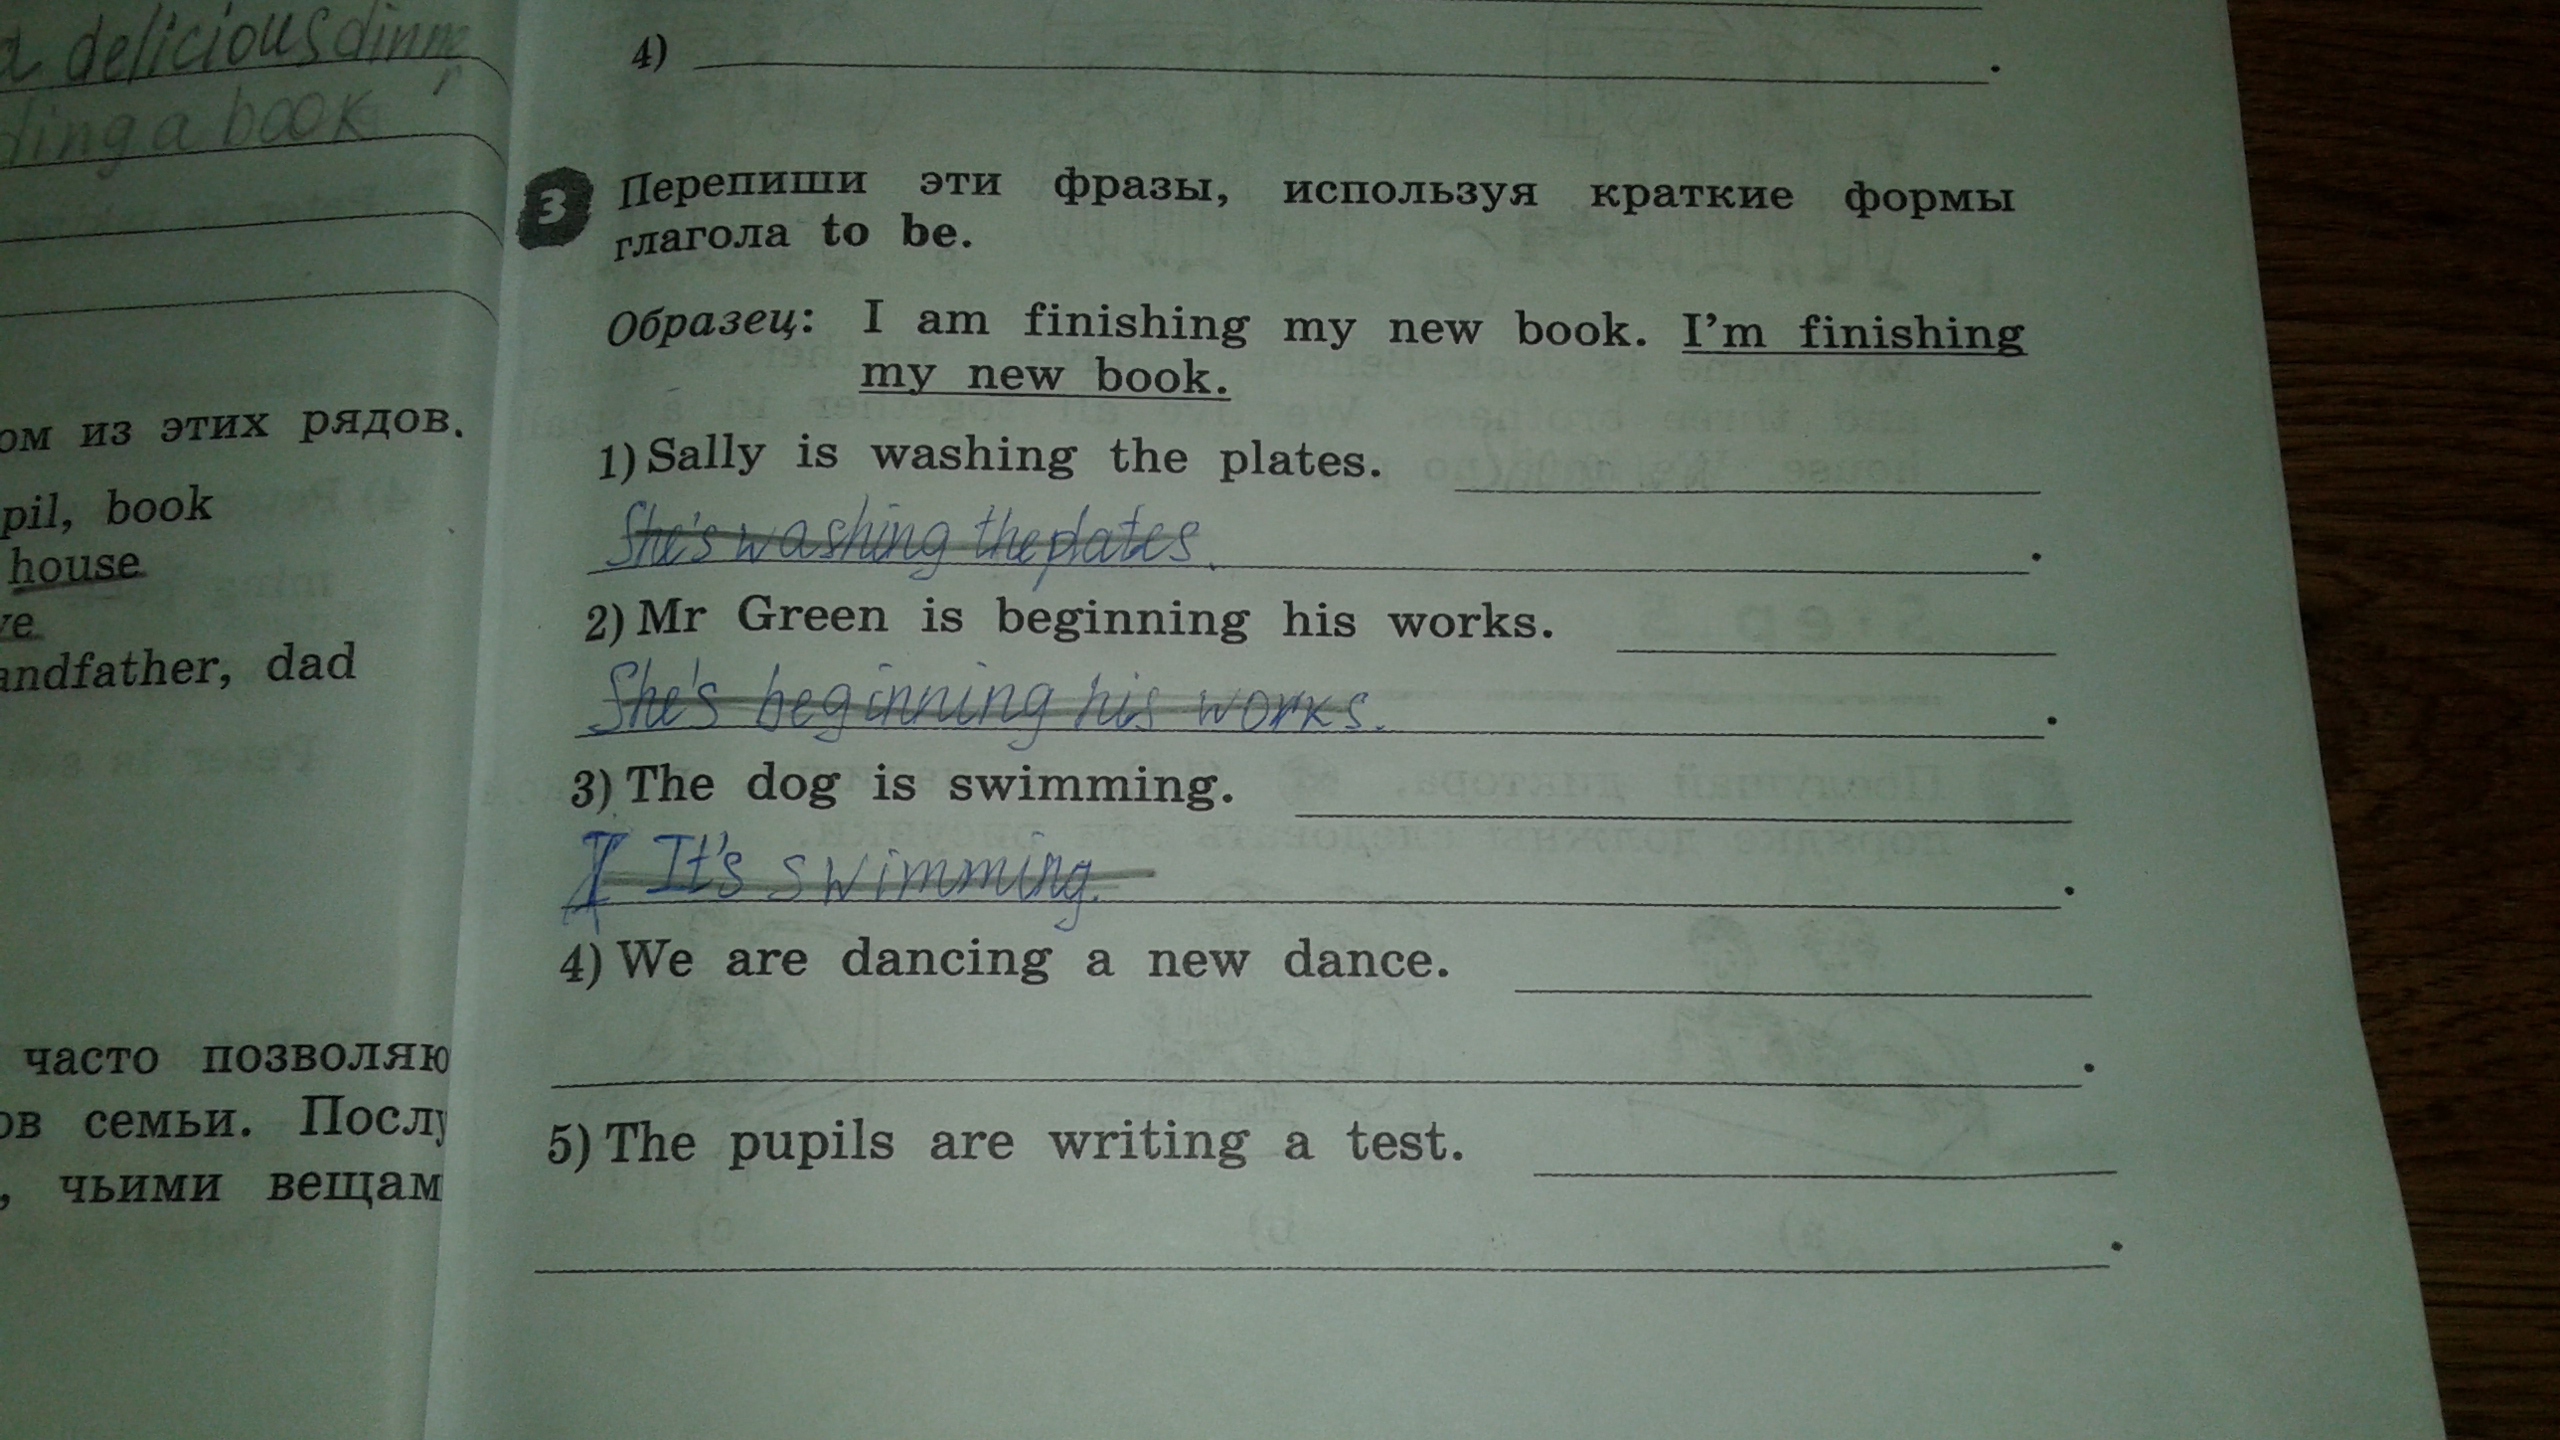 a delicious dinner
ding a book
ом из этих рядов.
pil, book
house
ve
andfather, dad
часто позволяю
ов семьи. Послу
, чьими вещам
4)
3 Перепиши эти фразы, используя краткие формы
глагола to be.
Образец: I am finishing my new book. I'm finishing
my new book.
1) Sally is washing the plates.
She's washing the plates.
2) Mr Green is beginning his works.
She's beginning his works.
3) The dog is swimming.
I It's swimming.
4) We are dancing a new dance.
5) The pupils are writing a test.